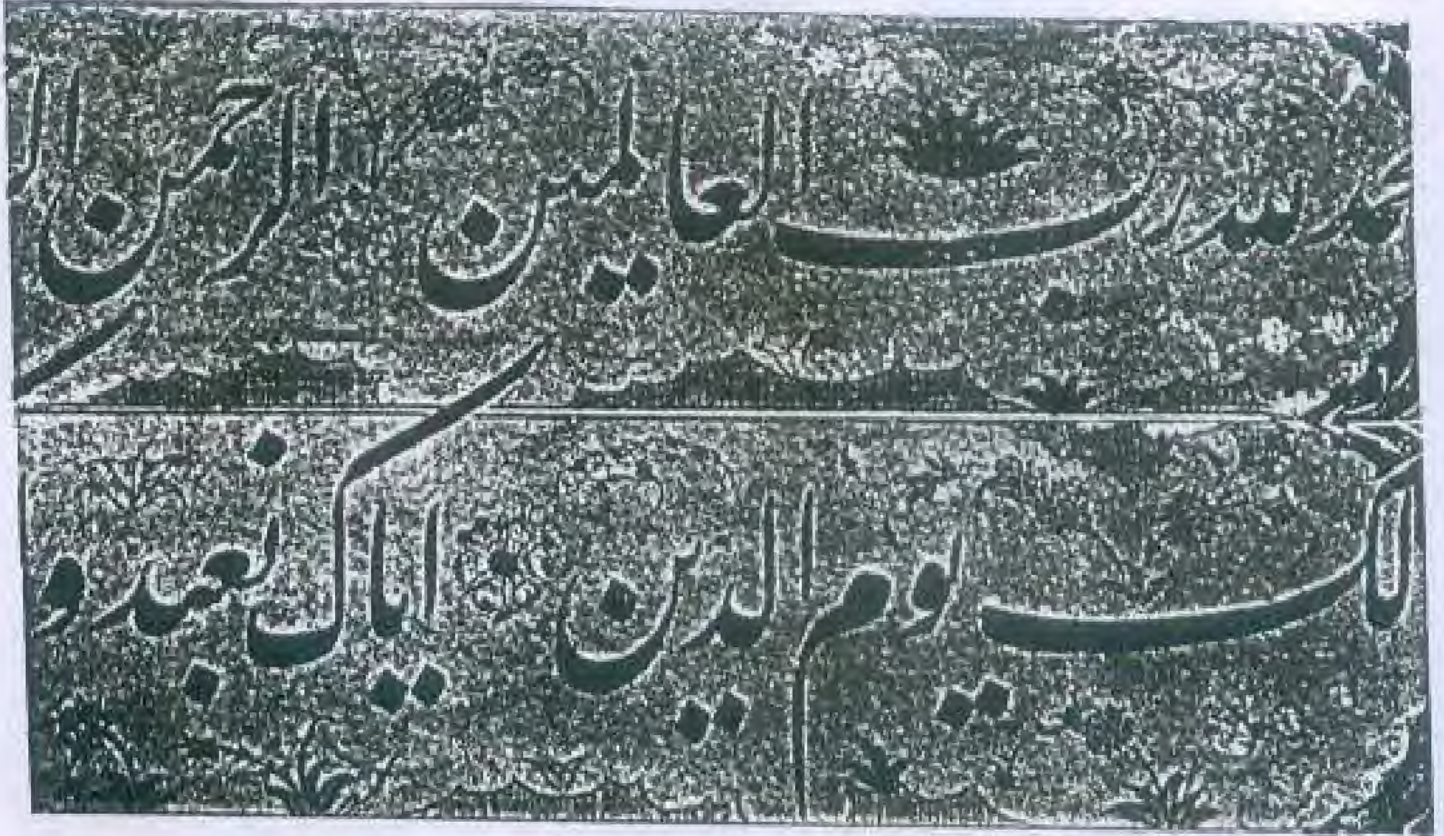 حمد لله رب العالمین الرحمن ال
مالک یوم الدین ایاک نعبد و